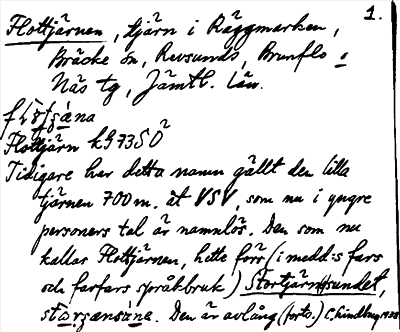 1.
Flottjärnen, tjärn i Räggmarken,
Bräcke sn, Revsunds, Brunflo o
Näs tg, Jämtl. län.
Flottjärn kG73SÖ
Tidigare har detta namn gällt den lilla
tjärnen 700 m. åt VSV, som nu i yngre
personers tal är namnlös. Den som nu
kallar Flottjärnen, hette förr (i medd:s fars
och farfars språkbruk) Stortjärnsundet,
Den är avlång (forts.) C. Lindberg 1935